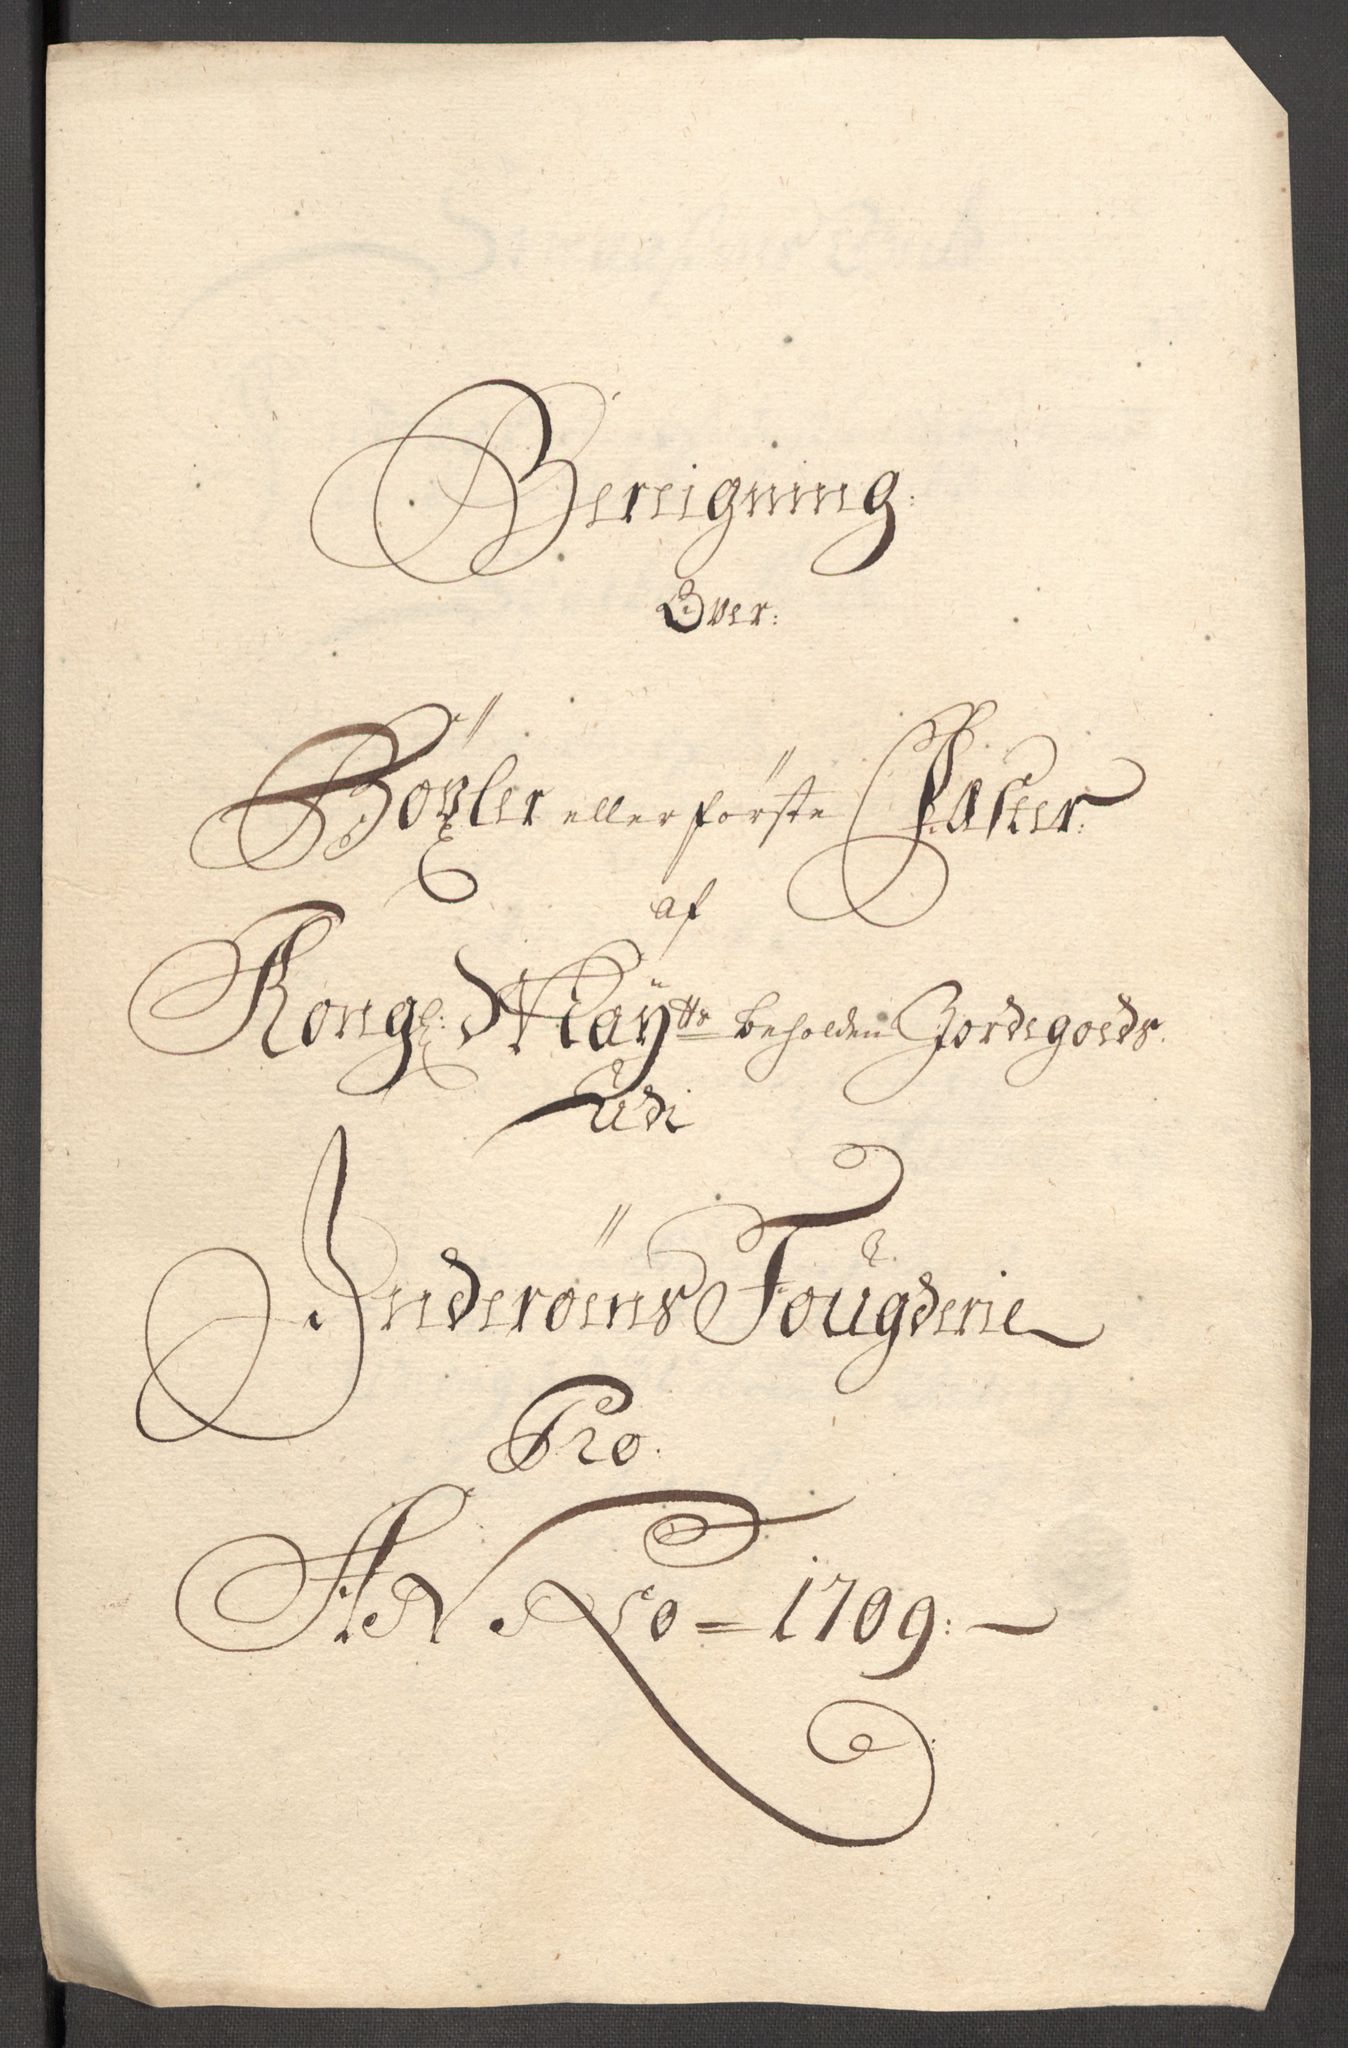 Bereigning:
Over:
Böxler eller förste Tæster.
af
Kongl: Maÿtts beholden Jordegoeds.
Udi
Inderöens Fougderie
Pro.
ANNO = 1709: —